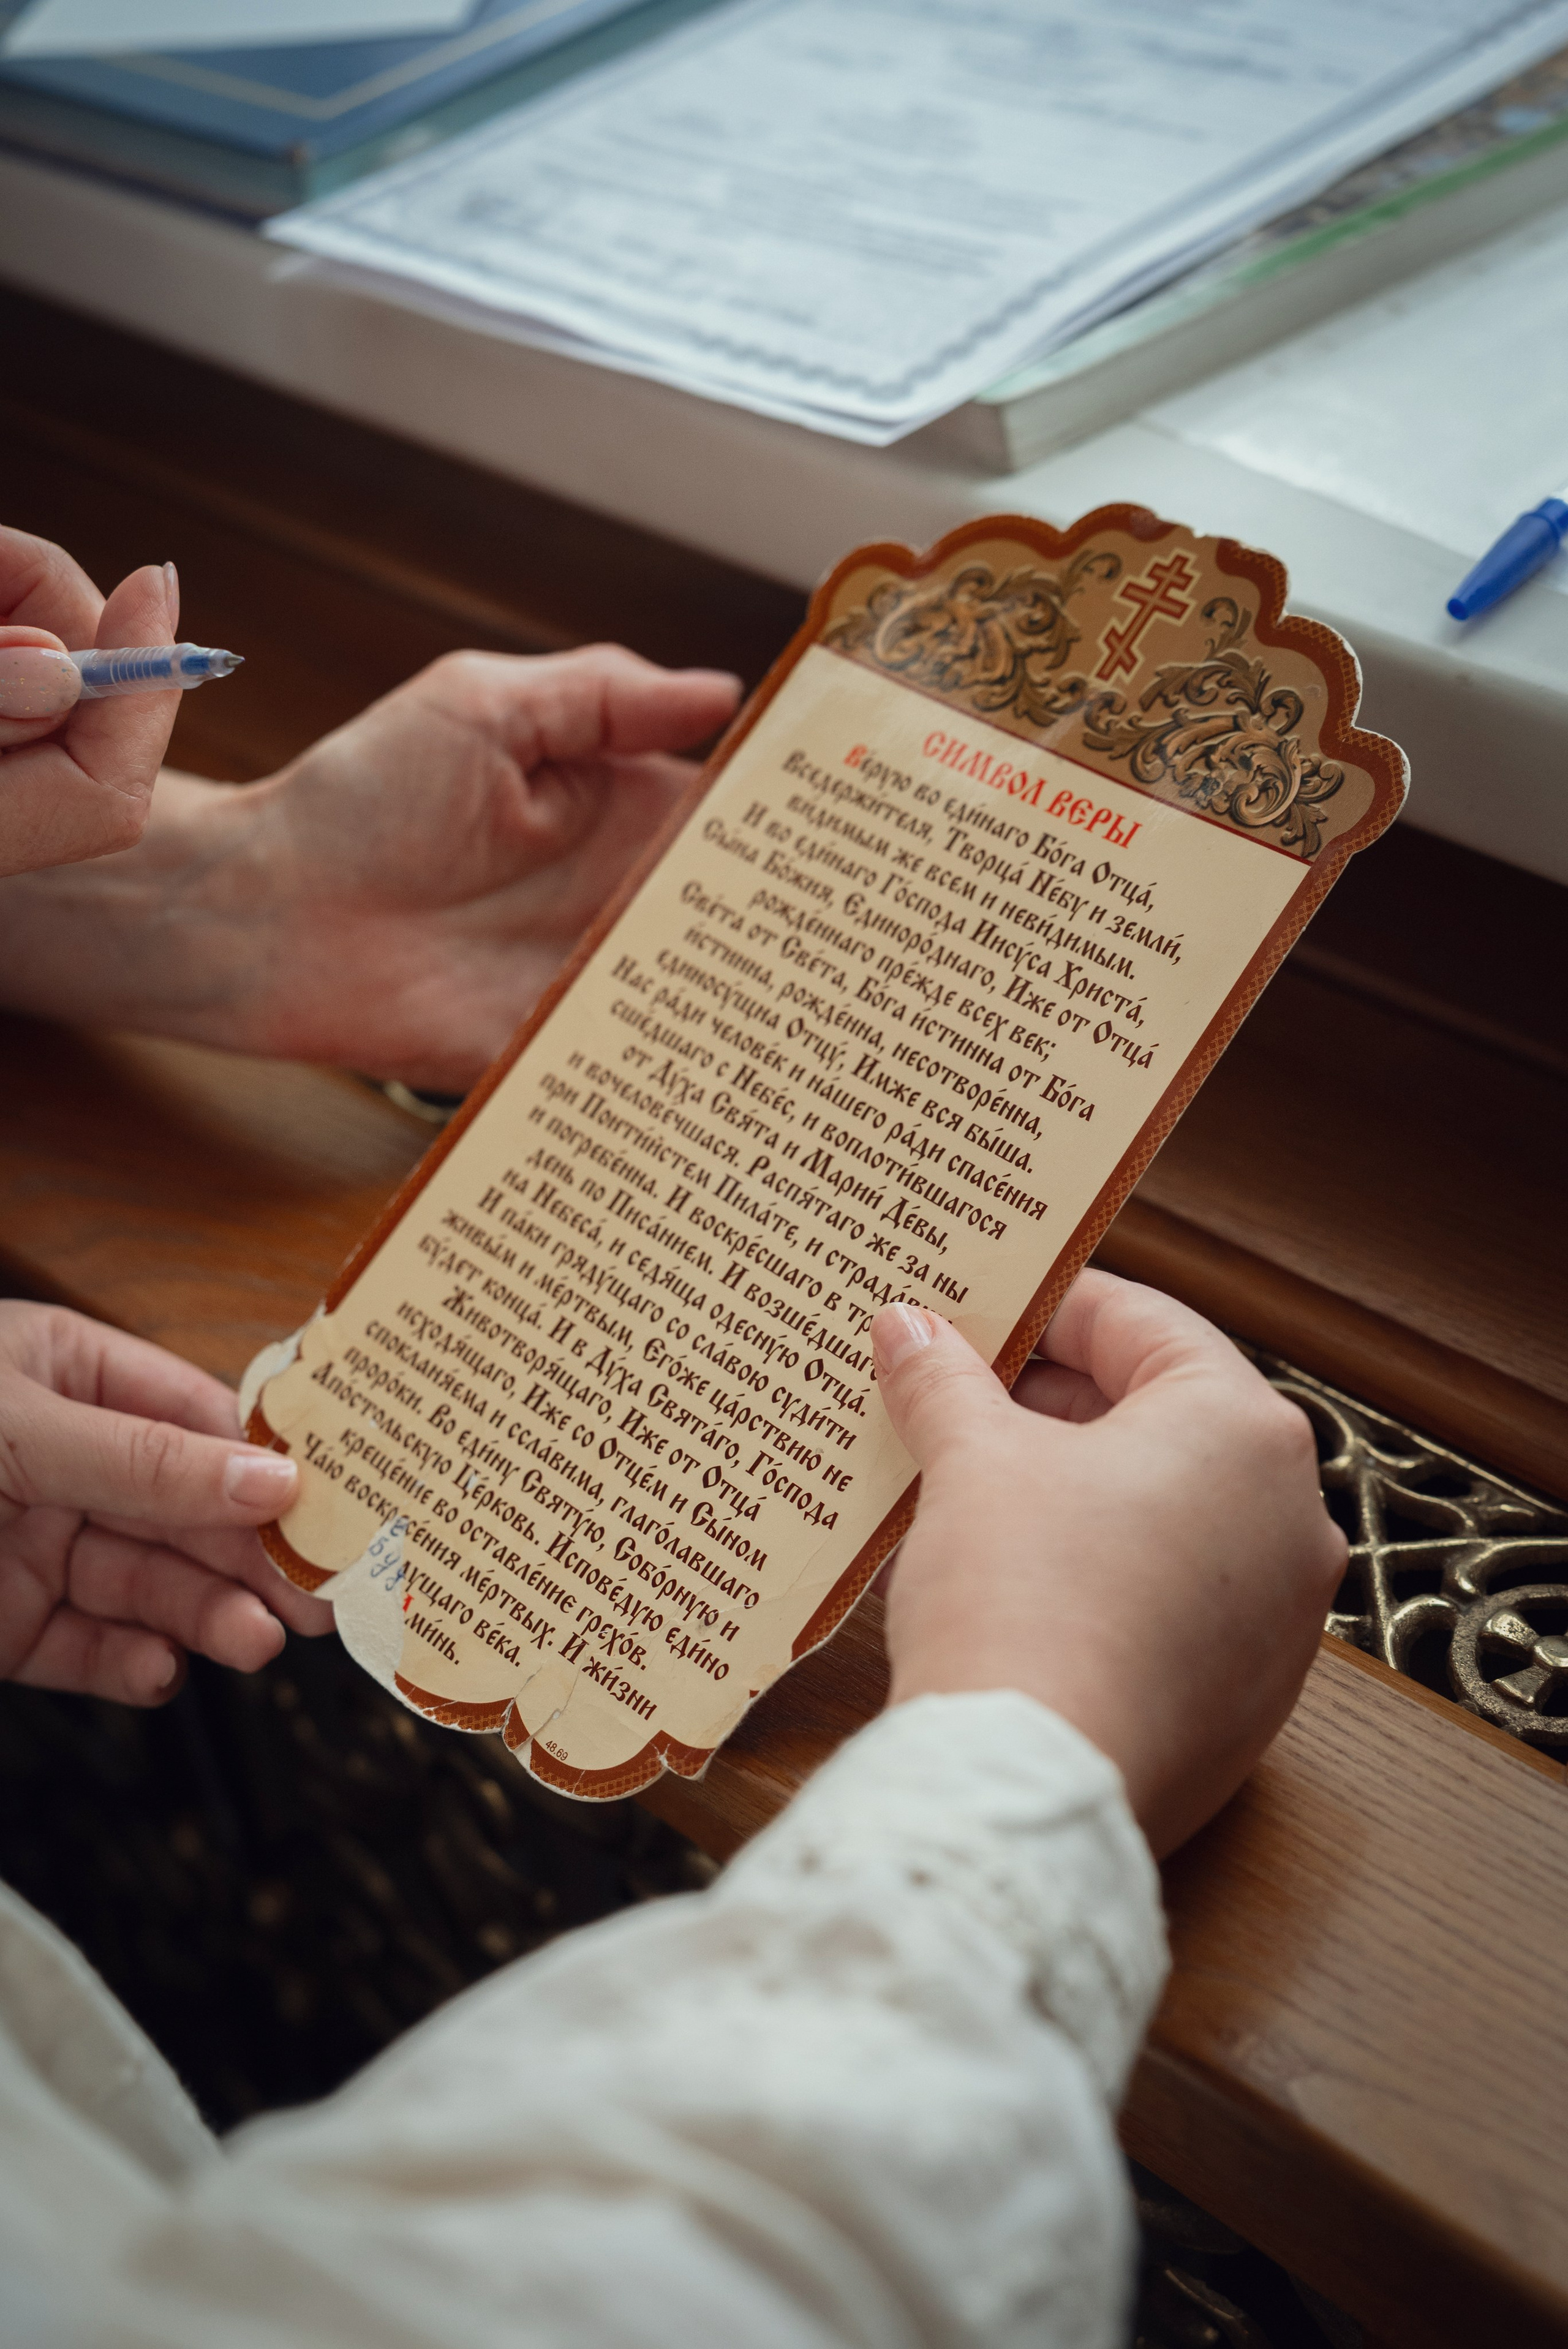 СИМВОЛ ВЕРЫ
Ве́рую во еди́наго Бо́га Отца́,
Вседержи́теля, Творца́ Не́бу и земли́,
видимым же всем и неви́димым.
И во еди́наго Го́спода Иису́са Христа́,
Сы́на Бо́жия, Единоро́днаго, Иже от Отца́
рожде́ннаго пре́жде всех век;
Све́та от Све́та, Бо́га и́стинна от Бо́га
и́стинна, рожде́нна, несотворе́нна,
единосу́щна Отцу́, Имже вся бы́ша.
Нас ра́ди челове́к и на́шего ра́ди спасе́ния
сше́дшаго с Небе́с, и воплоти́вшагося
от Ду́ха Свя́та и Марии́ Де́вы,
и вочелове́чшася. Распя́таго же за ны
при Понти́йстем Пила́те, и страда́
и погребе́нна. И воскре́сшаго в тр
день по Писа́нием. И возше́дшаго
на Небеса́, и седя́ща одесну́ю Отца́.
И па́ки гряду́щаго со сла́вою суди́ти
живы́м и ме́ртвым, Его́же ца́рствию не
бу́дет конца́. И в Ду́ха Свята́го, Го́спода
Животворя́щаго, Иже от Отца́
исходя́щаго, Иже со Отце́м и Сы́ном
спокланя́ема и ссла́вима, глаго́лавшаго
проро́ки. Во еди́ну Святу́ю, Собо́рную и
Апо́стольскую Це́рковь. Испове́дую еди́но
креще́ние во оставле́ние грехо́в.
Ча́ю воскресе́ния ме́ртвых. И жи́зни
будущаго ве́ка.
Ами́нь.
48.69